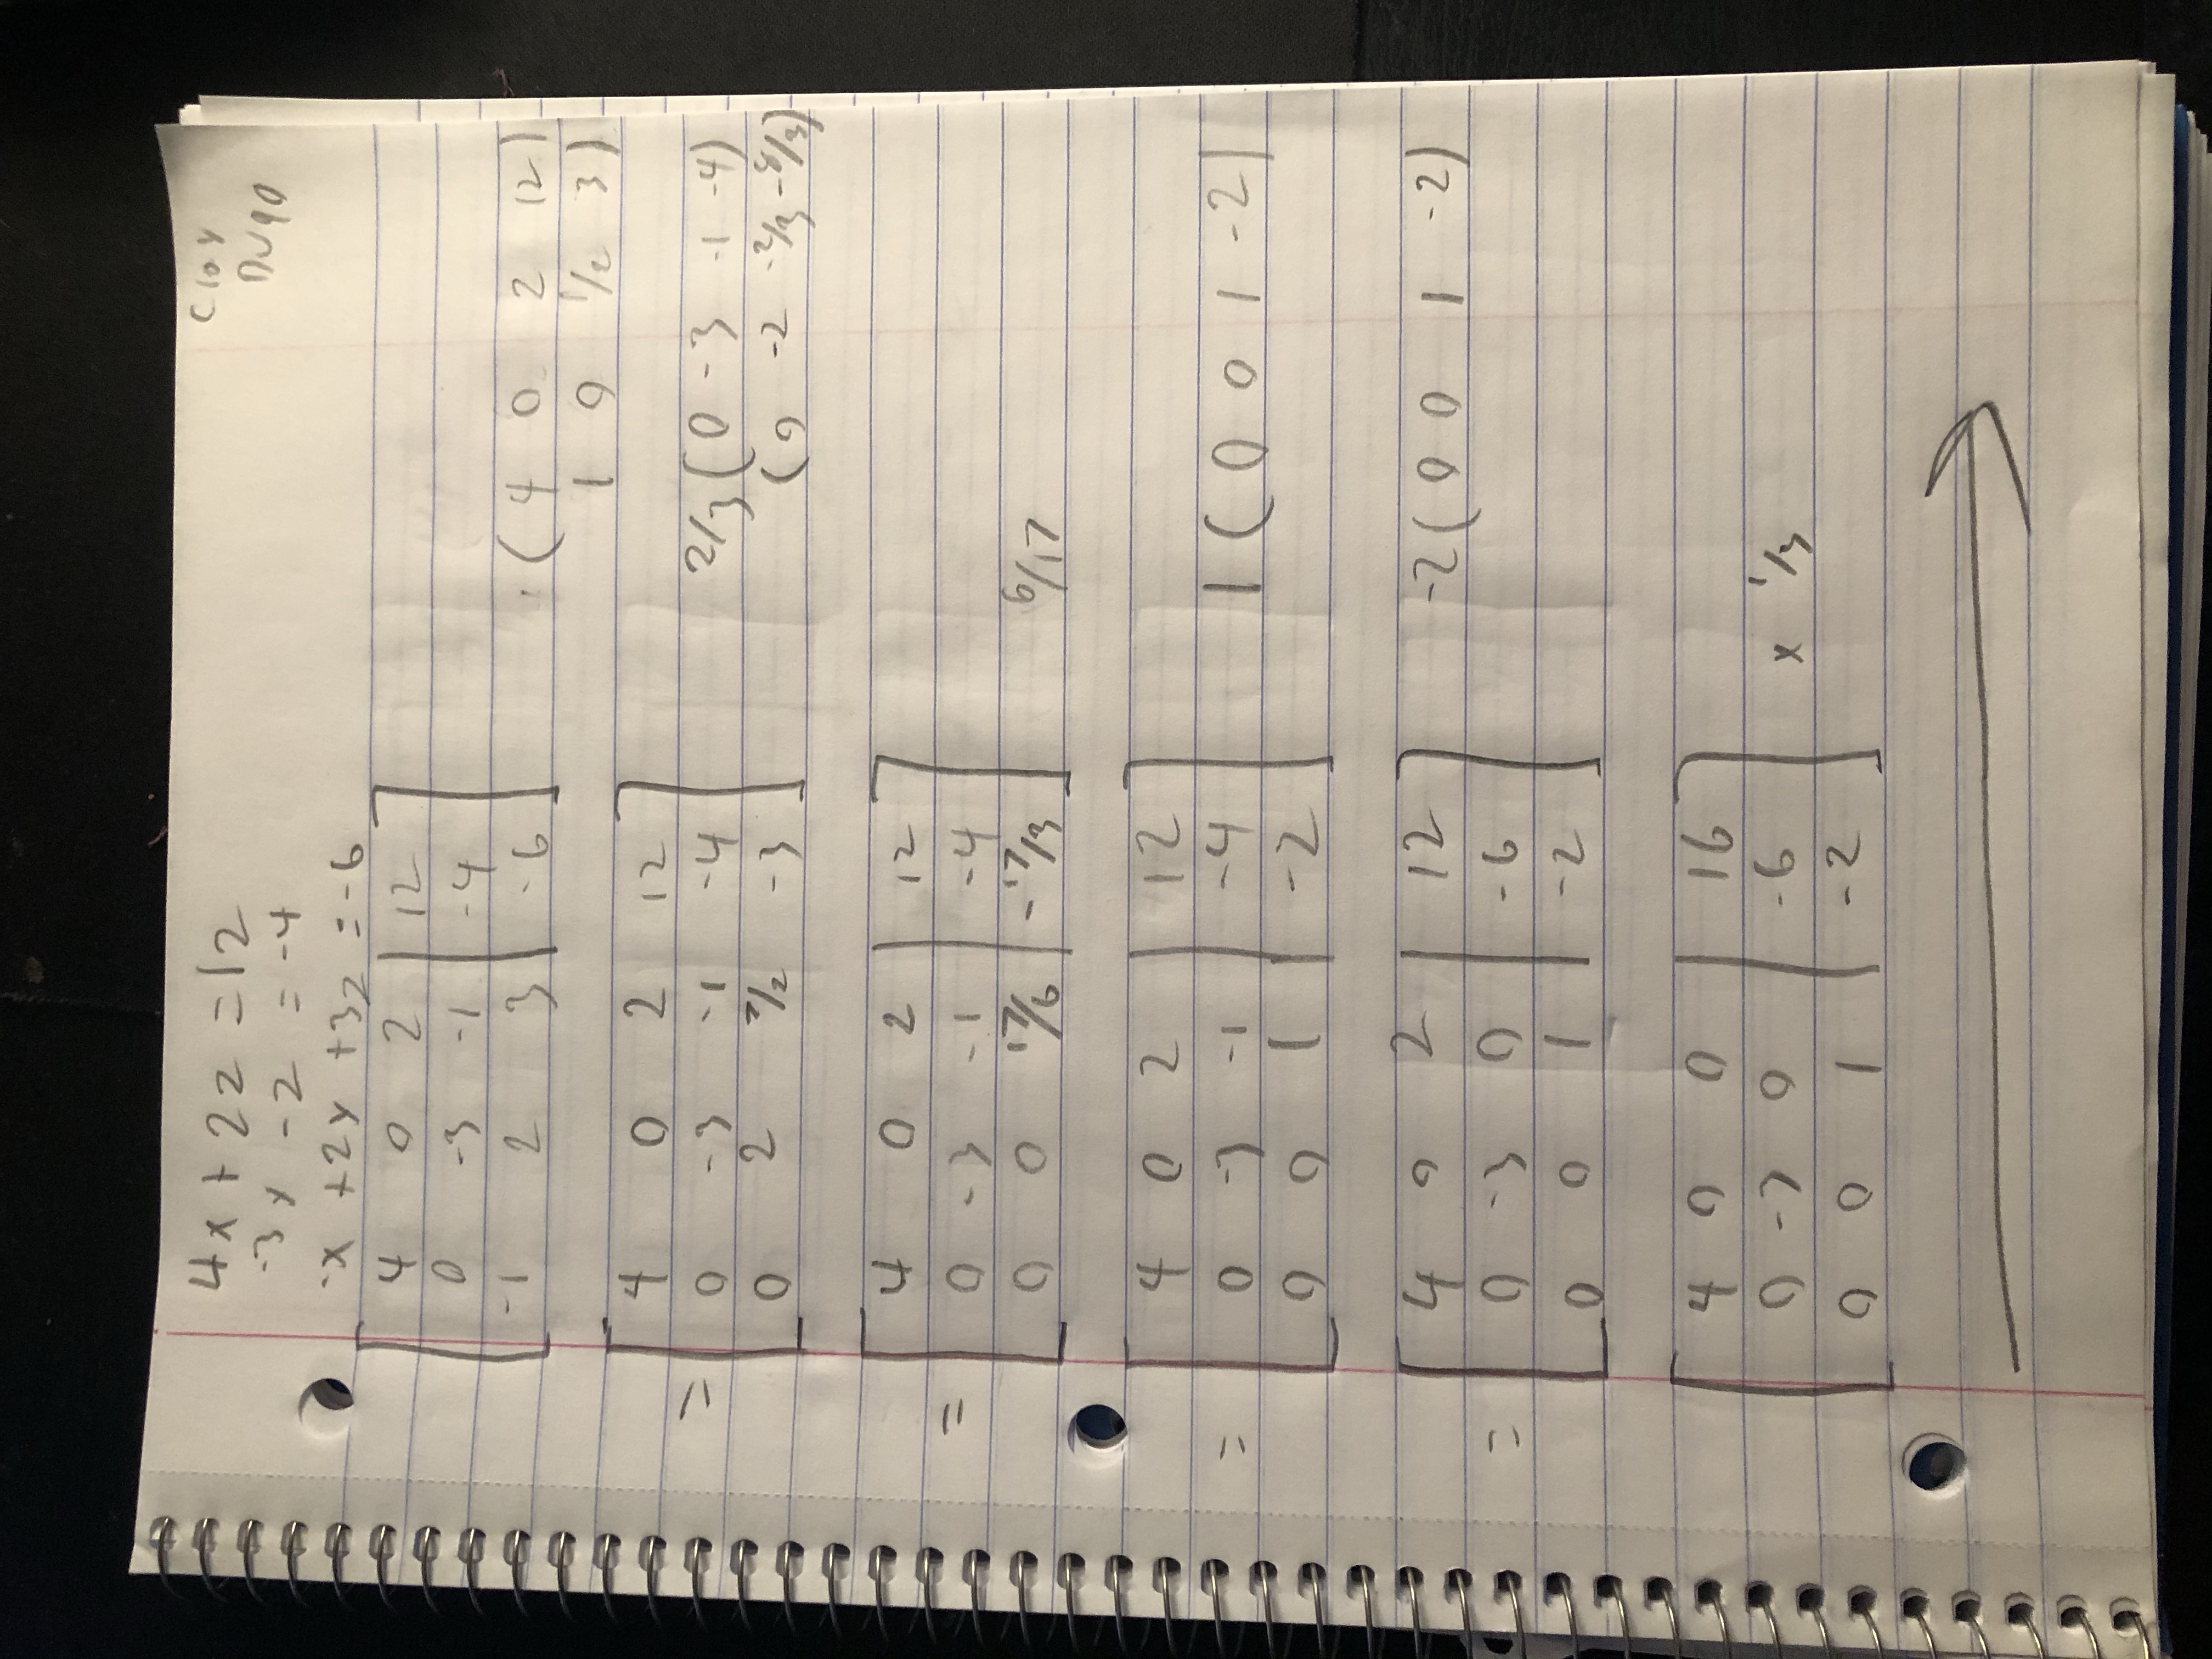 Clay
Dugo
4x + 2z = 12
-3y - z = -4
-x + 2y + 3z = -6
4 0 2 | 12
0 -3 -1 | -4
-1 2 3 | -6
(4 0 2 12)
1 0 1/2 3)
= 4 0 2 12
0 -3 -1 -4
0 2 7/2 -3
2/3 (0 -3 -1 -4)
(0 -2 -2/3 -8/3)
= 4 0 2 | 12
0 -3 -1 | -4
0 0 17/6 | -17/3
6/17
= 4 0 2 | 12
0 -3 -1 | -4
0 0 1 | -2
1 (0 0 1 -2)
= 4 0 2 | 12
0 -3 0 | -6
0 0 1 | -2
-2 (0 0 1 -2)
4 0 0 | 16
0 -3 0 | -6
0 0 1 | -2
x 1/3